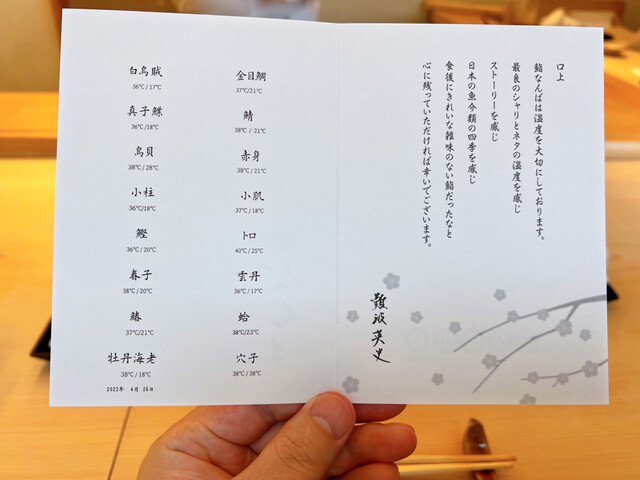 白烏賊
36℃/17℃
真子鰈
36℃/18℃
鳥貝
38℃/28℃
小柱
36℃/18℃
鰹
36℃/20℃
春子
38℃/20℃
鰆
37℃/21℃
牡丹海老
38℃/18℃
2022年 4月 26日
金目鯛
37℃/21℃
鯖
38℃/21℃
赤身
38℃/21℃
小肌
37℃/18℃
トロ
40℃/25℃
雲丹
36℃/17℃
蛤
38℃/23℃
穴子
38℃/38℃
口上
鮨なんばは温度を大切にしております。
最良のシャリとネタの温度を感じ
ストーリーを感じ
日本の魚介類の四季を感じ
食後にきれいな雑味のない鮨だったなと
心に残っていただければ幸いでございます。
難波英史